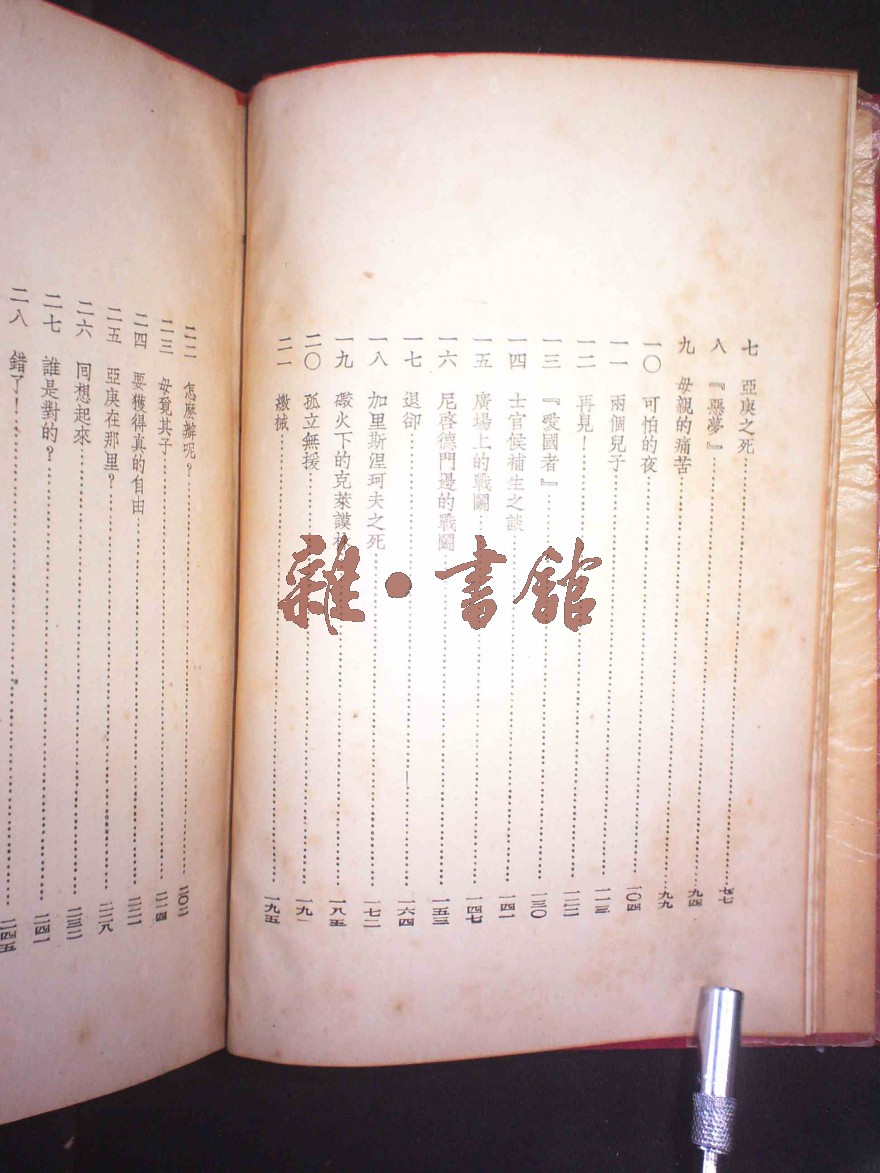 七 亞庚之死 七七
八 『惡夢』 九四
九 母親的痛苦 九九
一〇 可怕的夜 一〇四
一一 兩個兒子 一一三
一二 再見！ 一二二
一三 『愛國者』 一三〇
一四 士官候補生之談 一四一
一五 廣場上的戰鬭 一四七
一六 尼啓德門邊的戰鬭 一五三
一七 退卻 一六四
一八 加里斯涅珂夫之死 一七二
一九 礮火下的克萊謨 一八五
二〇 孤立無援 一九一
二一 繳械 一九五
二二 怎麽辦呢？ 二〇二
二三 母覓其子 二一四
二四 要獲得真的自由 二二二
二五 亞庚在那里？ 二二八
二六 囘想起來 二三二
二七 誰是對的？ 二四一
二八 錯了！ 二四五
雜·書館